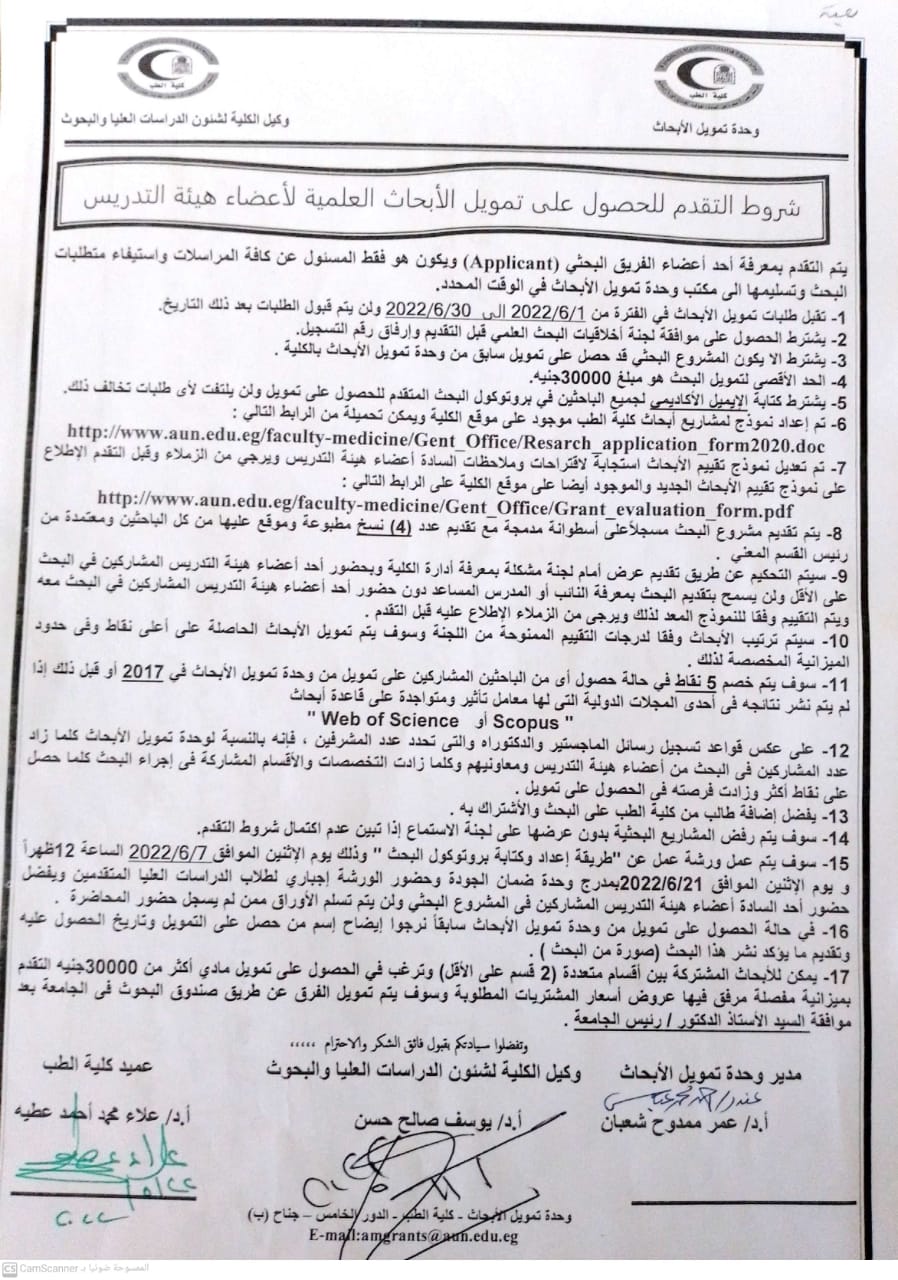 كلية الطب
كلية الطب
وحدة تمويل الأبحاث
وكيل الكلية لشئون الدراسات العليا والبحوث
شروط التقدم للحصول على تمويل الأبحاث العلمية لأعضاء هيئة التدريس
يتم التقدم بمعرفة أحد أعضاء الفريق البحثي (Applicant) ويكون هو فقط المسئول عن كافة المراسلات واستيفاء متطلبات
البحث وتسليمها الى مكتب وحدة تمويل الأبحاث في الوقت المحدد.
1- تقبل طلبات تمويل الأبحاث في الفترة من 2022/6/1 الى 2022/6/30 ولن يتم قبول الطلبات بعد ذلك التاريخ.
2- يشترط الحصول على موافقة لجنة أخلاقيات البحث العلمي قبل التقديم وإرفاق رقم التسجيل.
3- يشترط الا يكون المشروع البحثي قد حصل على تمويل سابق من وحدة تمويل الأبحاث بالكلية .
4- الحد الأقصى لتمويل البحث هو مبلغ 30000جنيه.
5- يشترط كتابة الإيميل الأكاديمي لجميع الباحثين في بروتوكول البحث المتقدم للحصول على تمويل ولن يلتفت لأى طلبات تخالف ذلك.
6- تم إعداد نموذج لمشاريع أبحاث كلية الطب موجود على موقع الكلية ويمكن تحميلة من الرابط التالي :
http://www.aun.edu.eg/faculty-medicine/Gent_Office/Resarch_application_form2020.doc
7- تم تعديل نموذج تقييم الأبحاث استجابة لاقتراحات وملاحظات السادة أعضاء هيئة التدريس ويرجي من الزملاء وقبل التقدم الإطلاع
على نموذج تقييم الأبحاث الجديد والموجود أيضا على موقع الكلية على الرابط التالي :
http://www.aun.edu.eg/faculty-medicine/Gent_Office/Grant_evaluation_form.pdf
8- يتم تقديم مشروع البحث مسجلاً على أسطوانة مدمجة مع تقديم عدد (4) نسخ مطبوعة وموقع عليها من كل الباحثين ومعتمدة من
رئيس القسم المعني .
9- سيتم التحكيم عن طريق تقديم عرض أمام لجنة مشكلة بمعرفة أدارة الكلية وبحضور أحد أعضاء هيئة التدريس المشاركين في البحث
على الأقل ولن يسمح بتقديم البحث بمعرفة النائب أو المدرس المساعد دون حضور أحد أعضاء هيئة التدريس المشاركين في البحث معه
ويتم التقييم وفقا للنموذج المعد لذلك ويرجي من الزملاء الإطلاع عليه قبل التقدم .
10- سيتم ترتيب الأبحاث وفقا لدرجات التقييم الممنوحة من اللجنة وسوف يتم تمويل الأبحاث الحاصلة على أعلى نقاط وفى حدود
الميزانية المخصصة لذلك .
11- سوف يتم خصم 5 نقاط في حالة حصول أى من الباحثين المشاركين على تمويل من وحدة تمويل الأبحاث في 2017 أو قبل ذلك إذا
لم يتم نشر نتائجه فى أحدى المجلات الدولية التى لها معامل تأثير ومتواجدة على قاعدة أبحاث
" Scopus أو Web of Science "
12- على عكس قواعد تسجيل رسائل الماجستير والدكتوراه والتى تحدد عدد المشرفين ، فإنه بالنسبة لوحدة تمويل الأبحاث كلما زاد
عدد المشاركين فى البحث من أعضاء هيئة التدريس ومعاونيهم وكلما زادت التخصصات والأقسام المشاركة فى إجراء البحث كلما حصل
على نقاط أكثر وزادت فرصته فى الحصول على تمويل .
13- يفضل إضافة طالب من كلية الطب على البحث والأشتراك به .
14- سوف يتم رفض المشاريع البحثية بدون عرضها على لجنة الاستماع إذا تبين عدم اكتمال شروط التقدم.
15- سوف يتم عمل ورشة عمل عن "طريقة إعداد وكتابة بروتوكول البحث " وذلك يوم الإثنين الموافق 2022/6/7 الساعة 12ظهراً
و يوم الإثنين الموافق 2022/6/21بمدرج وحدة ضمان الجودة وحضور الورشة إجباري لطلاب الدراسات العليا المتقدمين ويفضل
حضور أحد السادة أعضاء هيئة التدريس المشاركين فى المشروع البحثي ولن يتم تسلم الأوراق ممن لم يسجل حضور المحاضرة .
16- في حالة الحصول على تمويل من وحدة تمويل الأبحاث سابقاً نرجوا إيضاح إسم من حصل على التمويل وتاريخ الحصول عليه
وتقديم ما يؤكد نشر هذا البحث (صورة من البحث ) .
17- يمكن للأبحاث المشتركة بين أقسام متعددة (2 قسم على الأقل) وترغب في الحصول على تمويل مادي أكثر من 30000جنيه التقدم
بميزانية مفصلة مرفق فيها عروض أسعار المشتريات المطلوبة وسوف يتم تمويل الفرق عن طريق صندوق البحوث فى الجامعة بعد
موافقة السيد الأستاذ الدكتور / رئيس الجامعة .
وتفضلوا سيادتكم بقبول فائق الشكر والاحترام ،،،،،
مدير وحدة تمويل الأبحاث
وكيل الكلية لشئون الدراسات العليا والبحوث
عميد كلية الطب
أ.د/ عمر ممدوح شعبان
أ.د/ يوسف صالح حسن
أ.د/ علاء محمد أحمد عطيه
وحدة تمويل الأبحاث - كلية الطب - الدور الخامس – جناح (ب)
E-mail:amgrants@aun.edu.eg
CS CamScanner الممسوحة ضوئيا بـ